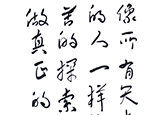 像所有天
的人一样
苦的探索
做真正的